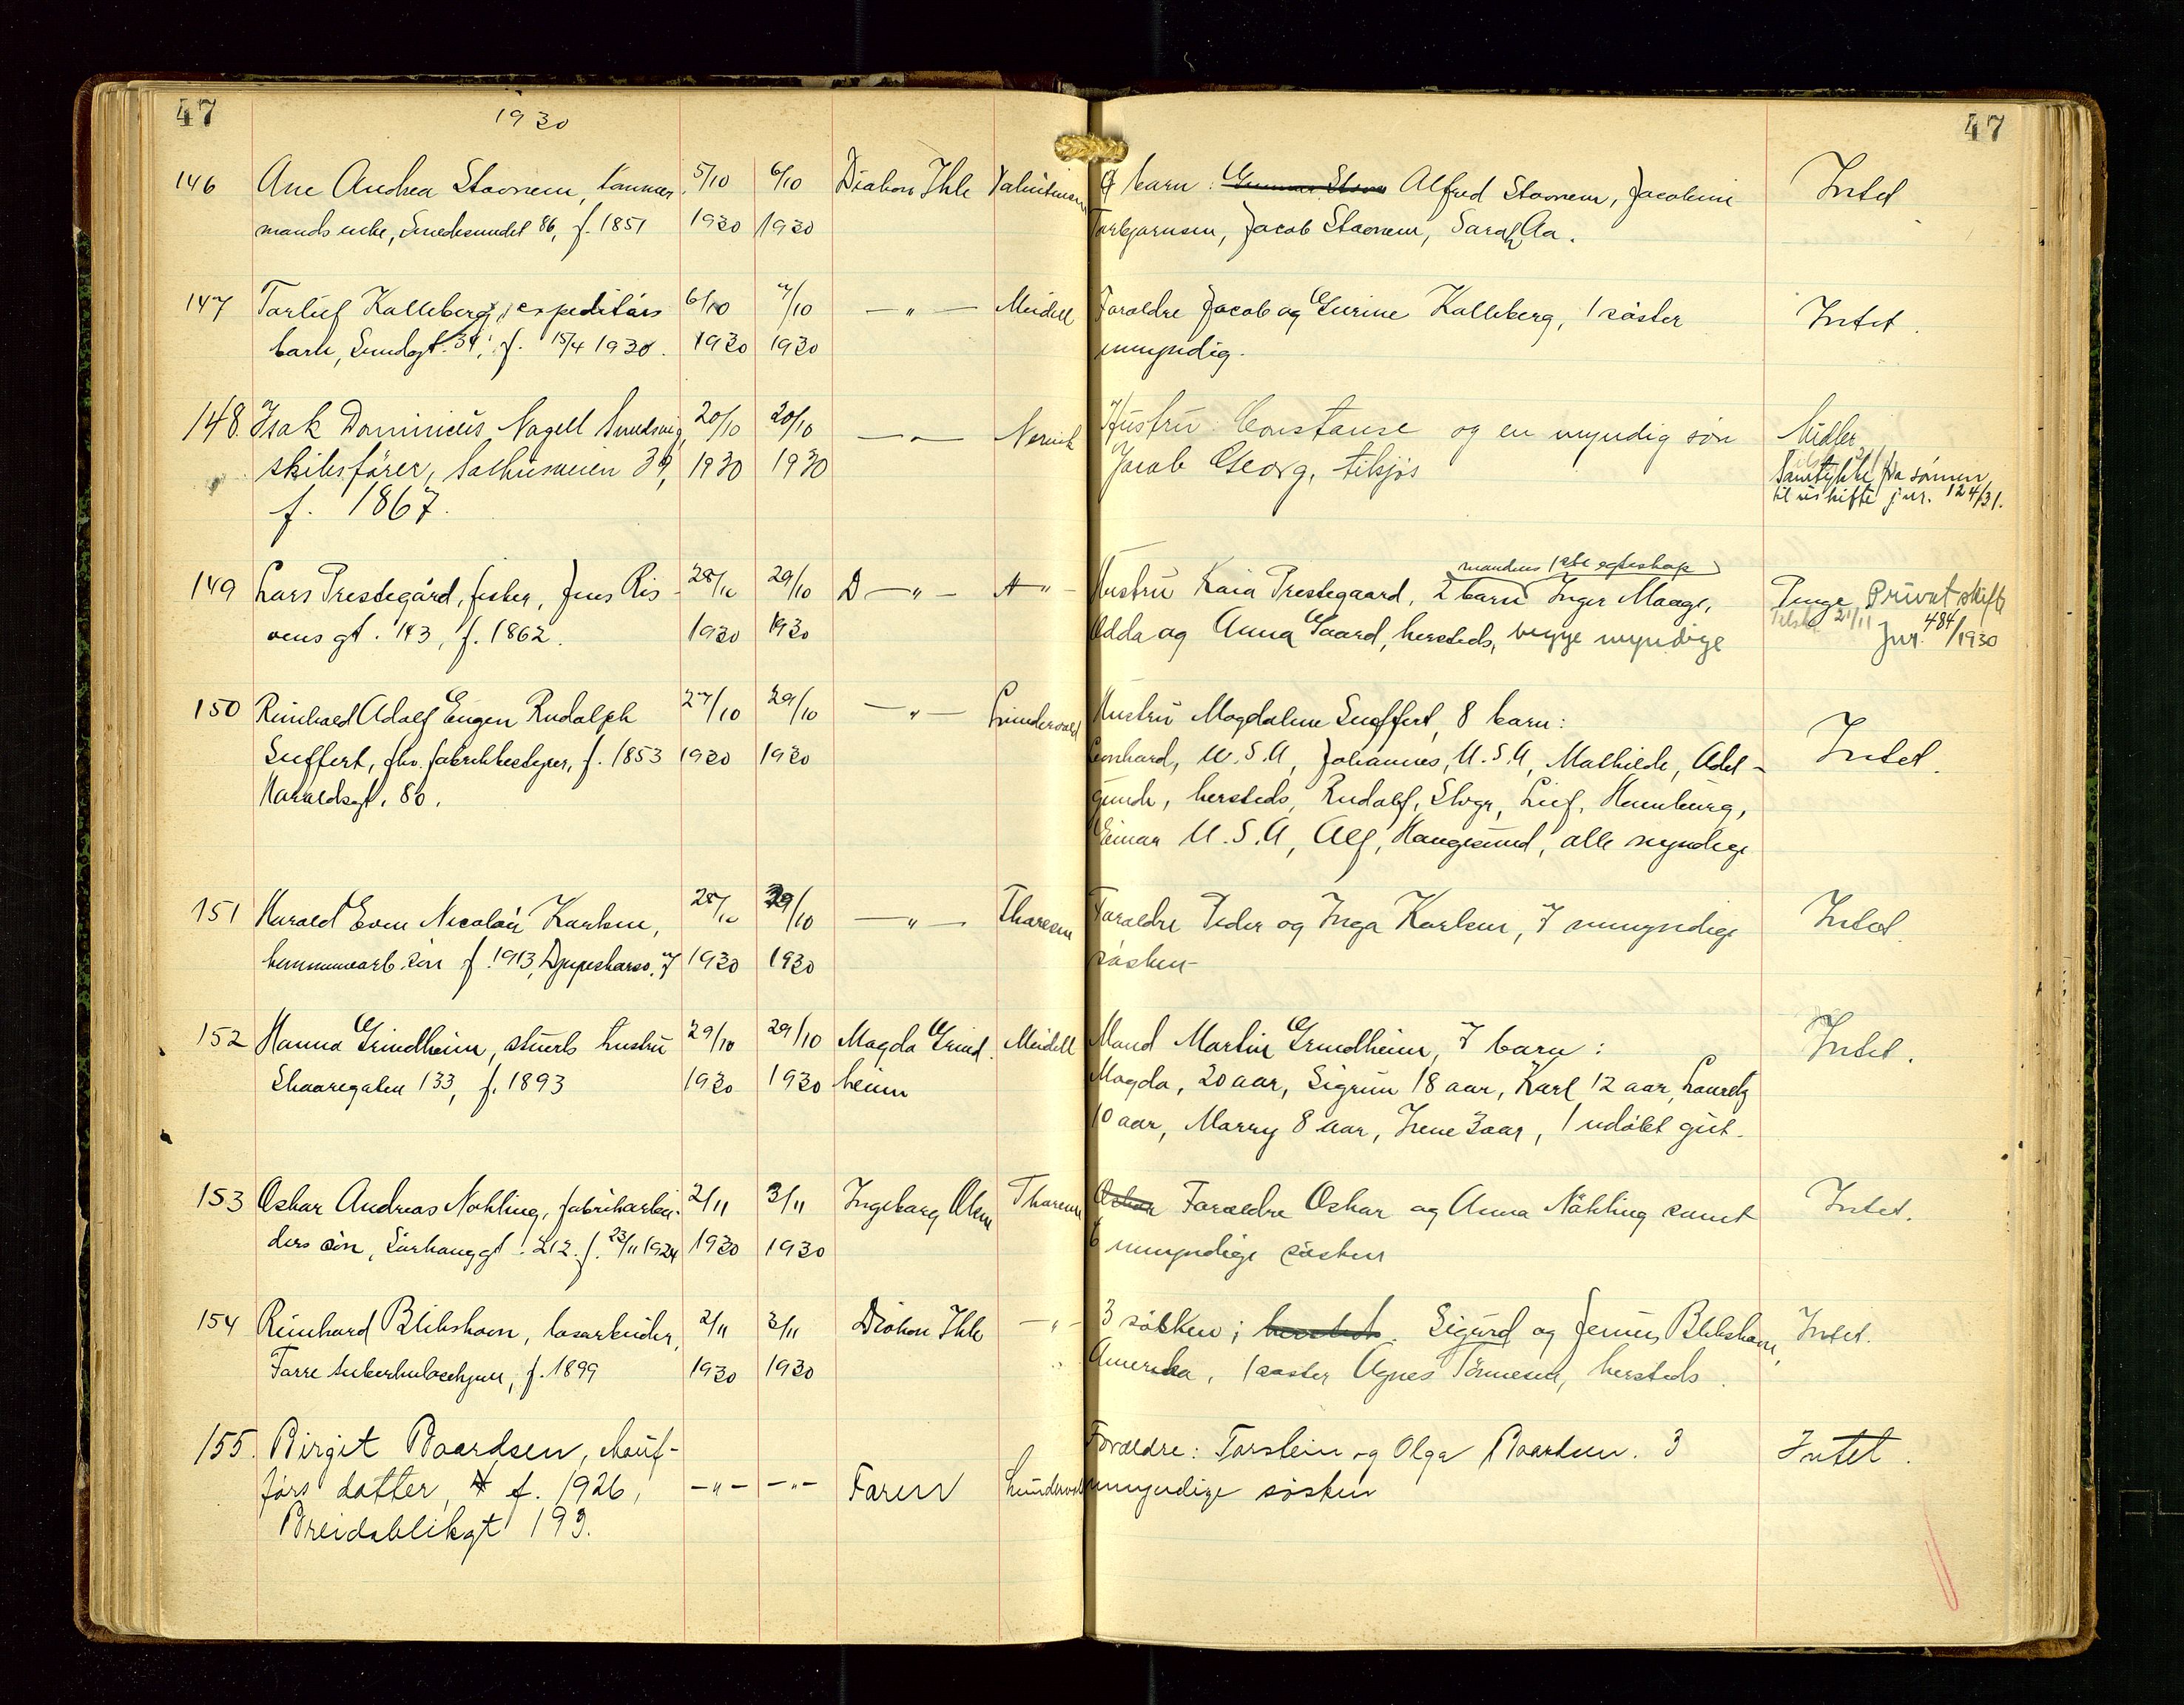 47
1930
47
146 Ane Andrea Stavnem, tømmer 5/10 6/10 Diakon Ihle Valentinsen 4 barn: Alfred Stavnem, Jacobine Intet
mands enke, Smedesundet 86, f. 1851 1930 1930 Torbjørnsen, Jacob Stavnem, Sarah Aa.
147 Torleif Kalleberg, expeditørs 6/10 7/10 — " — Meidell Forældre Jacob og Gurine Kalleberg, 1 søster Intet.
barn, Sundgt. 39, f. 15/4 1930. 1930 1930 umyndig.
148. Isak Dominicus Nagell Smedsvig, 20/10 20/10 — " — Nervik Hustru Constanse og en myndig søn Midler
skibsfører, Salhusveien 39, 1930 1930 Jacob Georg, tilsjøs Samtykke fra sønnen
f. 1867. til uskifte jnr. 124/31.
mandens 1ste egteskap
149 Lars Prestegård, fisker, Jens Ris- 28/10 29/10 D — " — A " Hustru Kaia Prestegaard, 2 barn Inger Maage, Penge Privat skifte
øens gt. 143, f. 1862. 1930 1930 Odda og Anna Gaard, hersteds, begge myndige Jnr. 484/1930
150 Reinhold Adolf Eugen Rudolph 27/10 29/10 — " — Lundervold Hustru Magdalene Suffert, 8 barn:
Suffert, fhv. fabrikbestyrer, f. 1853 1930 1930 Leonhard, U.S.A, Johannes, U.S.A, Mathilde, Adel- Intet.
Haraldsgt. 80. gunde, hersteds, Rudolf, Stvgr, Leif, Hamburg,
Einar U.S.A, Alf, Haugesund, alle myndige
151 Harald Even Nicolai Karlsen, 28/10 29/10 — " — Tharesen Forældre Peder og Inga Karlsen, 7 umyndige Intet.
kommunearb. søn f. 1913, Djupeskarsv. 7 1930 1930 søsken
152 Hanna Grindheim, stuerts hustru 29/10 29/10 Magda Grind- Meidell Mand Martin Grindheim, 7 barn: Intet.
Skaaregaten 133, f. 1893 1930 1930 heim Magda, 20 aar, Sigrun 18 aar, Karl 12 aar, Lauretz
10 aar, Marry 8 aar, Irene 3 aar, 1 udøbt gut.
153 Oskar Andreas Nøkling, fabrikarbei- 2/11 3/11 Ingeborg Olsen Tharesen Forældre Oskar og Anna Nøkling samt Intet.
ders søn, Sørhauggt. 212. f. 23/11 1924 1930 1930 6 umyndige søsken
154 Reinhard Blikshavn, løsarbeider, 2/11 3/11 Diakon Ihle — " — 3 søsken; Sigurd og Jenius Blikshavn, Intet.
Førre tuberkulosehjem, f. 1899 1930 1930 Amerika, 1 søster Agnes Tønnesen, hersteds.
155. Birgit Baardsen, chauf- Forældre: Torstein og Olga Baardsen. 3 Intet.
førs datter, f. 1926, — " — — " — Faren Lundervold umyndige søsken
Breidablikgt 193.